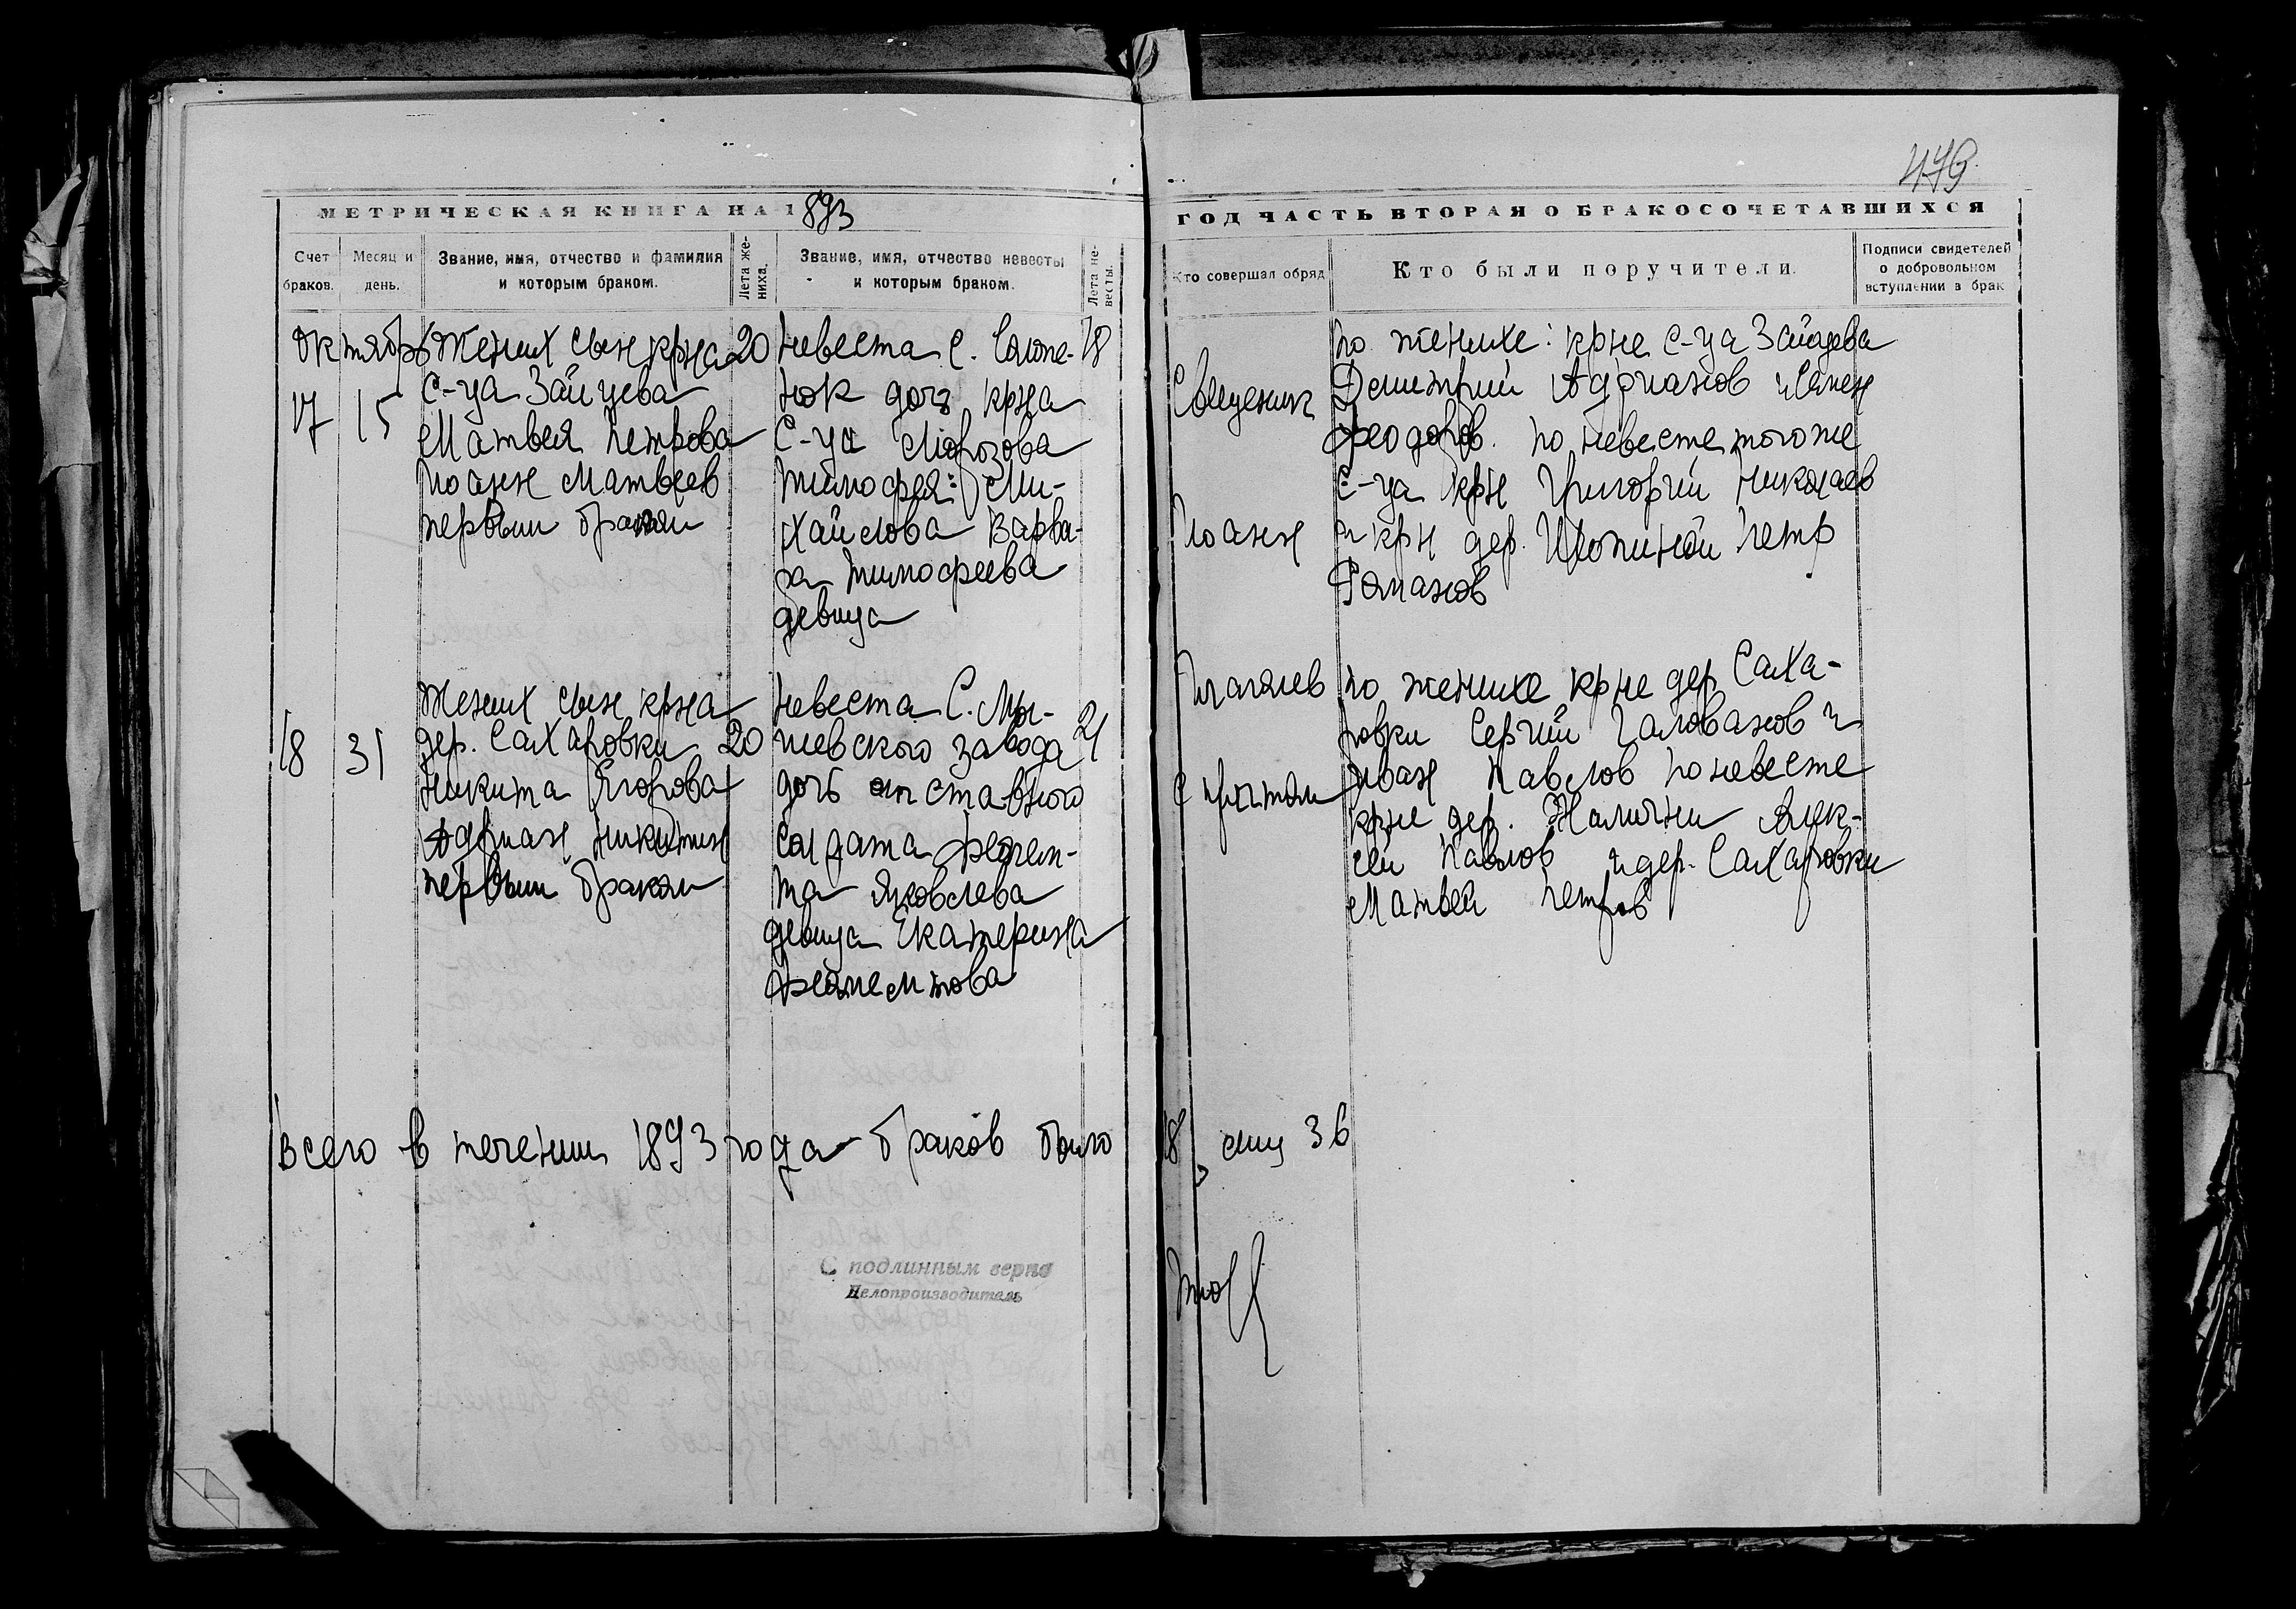 479
МЕТРИЧЕСКАЯ КНИГА НА 1893
ГОД ЧАСТЬ ВТОРАЯ О БРАКОСОЧЕТАВШИХСЯ
Счет браков.
Месяц и день.
Звание, имя, отчество и фамилия и которым браком.
Лета жениха.
Звание, имя, отчество невесты и которым браком.
Лета невесты.
Кто совершал обряд
Кто были поручители.
Подписи свидетелей о добровольном вступлении в брак
Октябрь
17
15
Жених сын крна
С-ца Зайцева
Матвея Петрова
Иоанн Матвеев
первым браком
20
Невеста С.
дочь крна
С-ца Морозова
Тимофея Ми-
хайлова Варва-
ра Тимофеева
девица
18
Священник
Иоанн
по женихе: крне с-ца Зайцева
Димитрий Адрианов
Феодоров. по невесте тогоже
с-ца крн Григорий Николаев
и крн дер. Петр
Романов
18
31
Жених сын крна
дер. Сахаровки
Никита Ягорова
Адриан Никитин
первым браком
20
Невеста С. Мы-
шевского завода
дочь отставного
солдата
Яковлева
девица Екатерина
21
с причтом
по женихе крне дер Саха-
ровки Сергий Галованов и
Иван Павлов по невесте
крне дер. Алек-
сей Павлов и дер. Сахаровки
Матвей Петров
Всего в течении 1893 года браков было 18, лиц 36
С подлинным верно
Делопроизводитель